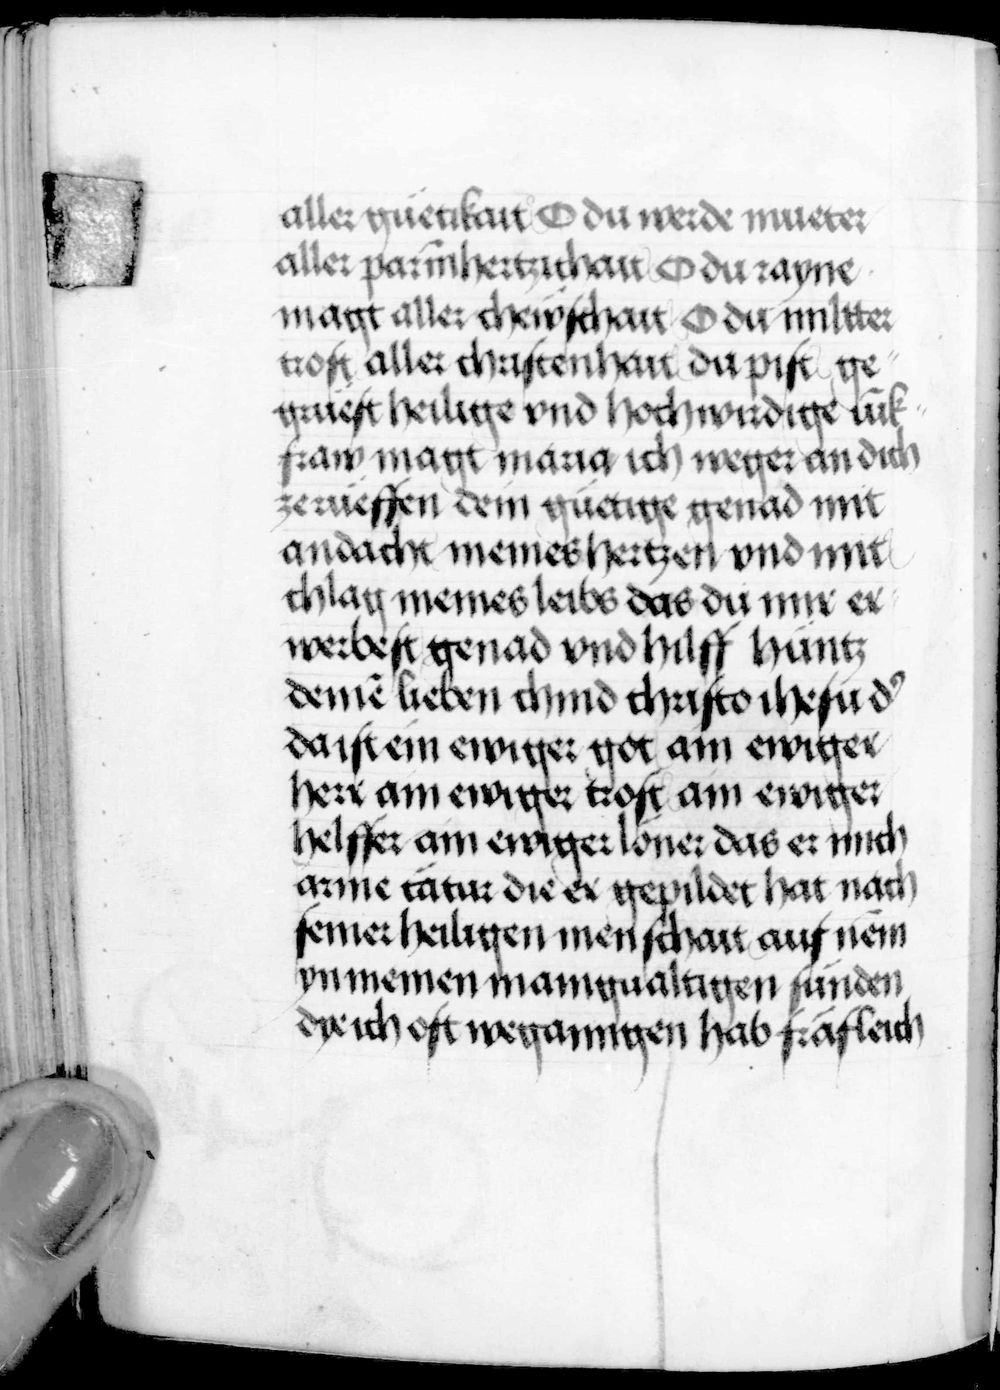 aller güetikait O du werde mueter
aller parm̄hertzichait O du rayne
magt aller chewschait O du miltter
trost aller christenhait du pist ge-
grüest heilige vnd hochwirdige iūk-
fraw magt maria ich weger an dich
ze rüeffen dein güetige genad mit
andacht meines hertzen vnd mit
chlag meines leibs das du mir er-
werbest genad vnd hilff hüntz
deinē lieben chind christo ihesu d᾽
da ist ein ewiger got ain ewiger
herr ain ewiger trost ain ewiger
helffer ain ewiger löner das er mich
arme cātur die er gepildet hat nach
seiner heiligen menschait auf nem
yn meinen maingualtigen sünden
dye ich oft weganngen hab fräfleich